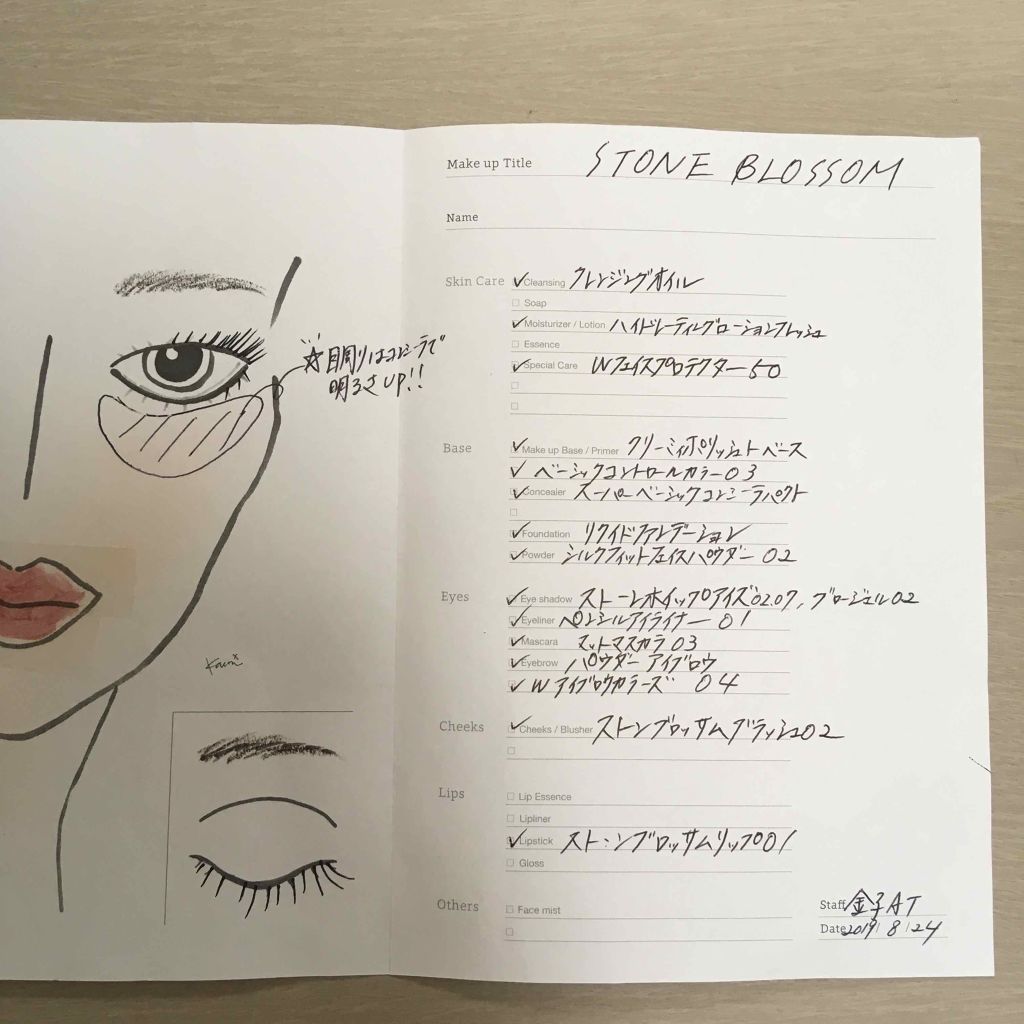 Make up Title STONE BLOSSOM
Name
☆目周りはコンシーラで
明るさUP!!
Skin Care ✓ Cleansing クレンジングオイル
Soap
✓ Moisturizer / Lotion ハイドレーティングローションフレッシュ
Essence
✓ Special Care Wフェイスプロテクター50
Base ✓ Make up Base / Primer クリーミィポリッシュトベース
✓ ベーシックコントロールカラー03
✓ Concealer スーパーベーシックコンシーラパクト
✓ Foundation リクイドファンデーション
✓ Powder シルクフィットフェイスパウダー 02
Eyes ✓ Eye shadow ストーンホイップアイズ02.07, ブロージェル02
✓ Eyeliner ペンシルアイライナー 01
✓ Mascara マットマスカラ 03
✓ Eyebrow パウダーアイブロウ
✓ Wアイブロウカラーズ 04
Cheeks ✓ Cheeks / Blusher ストンブロッサムブラッシュ02
Lips Lip Essence
Lipliner
✓ Lipstick ストーンブロッサムリップ001
Gloss
Others Face mist
Staff 金子AT
Date 2019/8/24